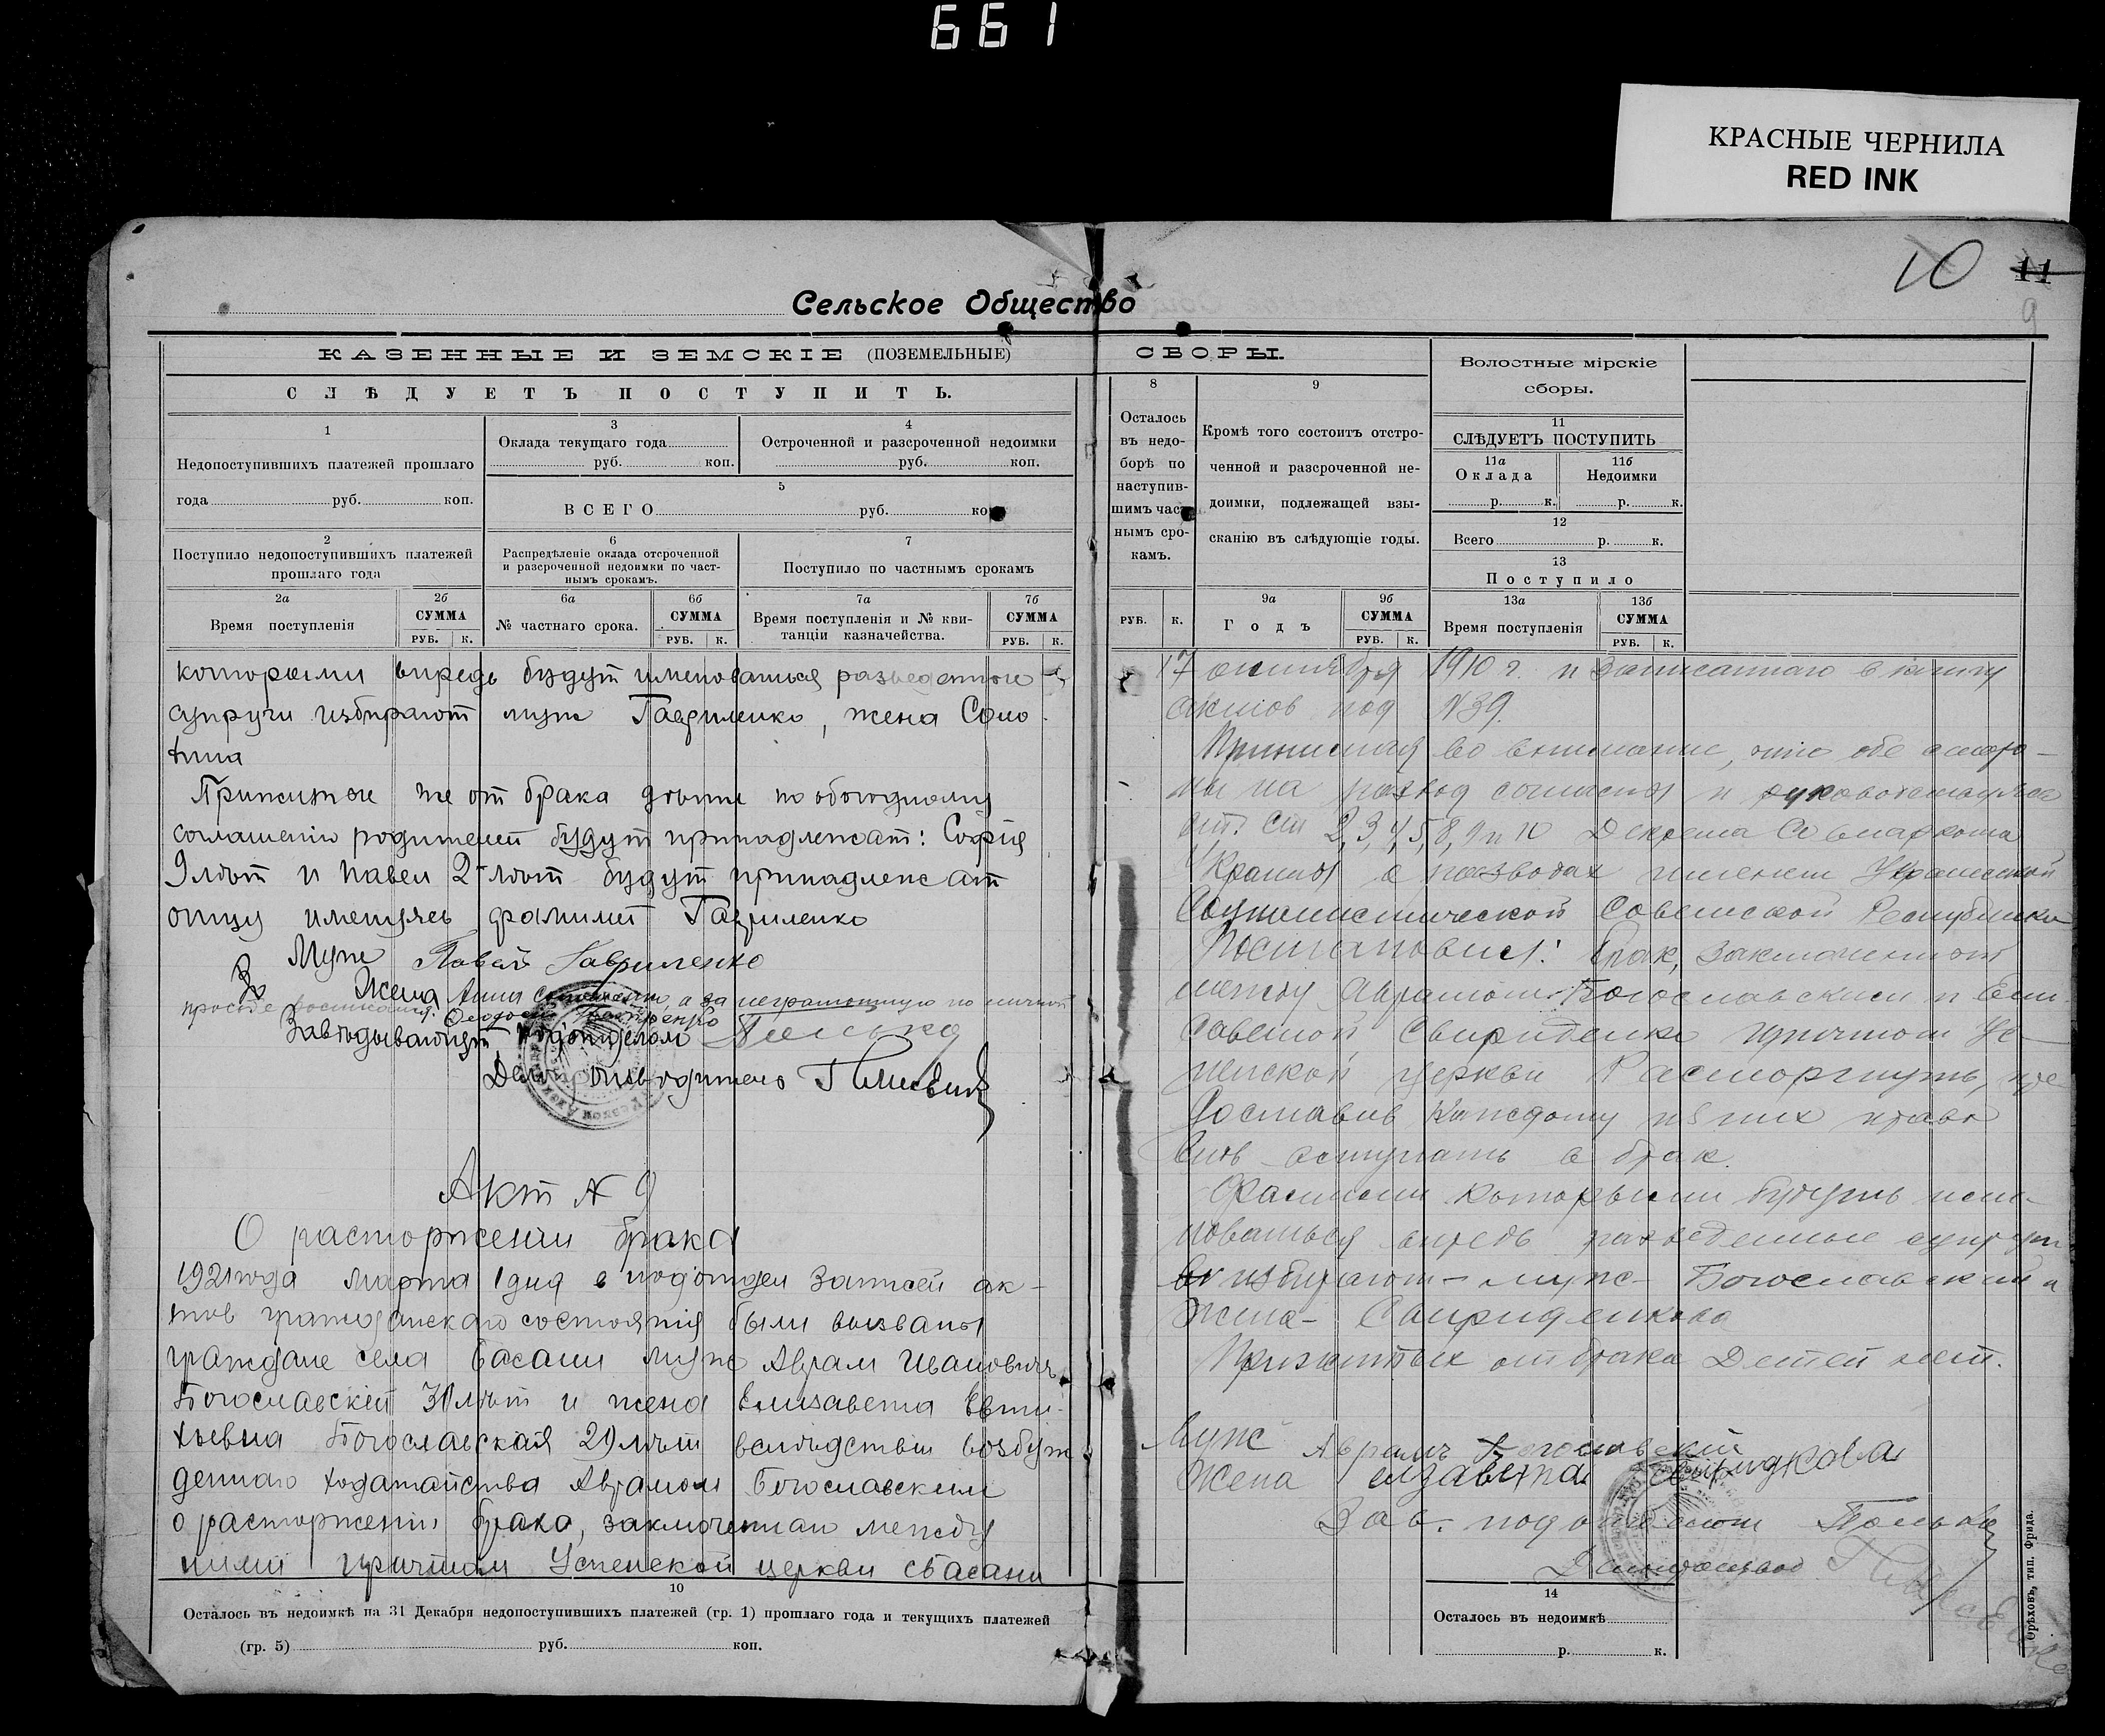 661
КРАСНЫЕ ЧЕРНИЛА
RED INK
10 11
9
Сельское Общество
КАЗЕННЫЕ И ЗЕМСКІЕ (ПОЗЕМЕЛЬНЫЕ) СБОРЫ.
СЛѢДУЕТЪ ПОСТУПИТЬ.
1
Недопоступившихъ платежей прошлаго
года руб. коп.
3
Оклада текущаго года
руб. коп.
4
Остроченной и разсроченной недоимки
руб. коп.
5
ВСЕГО руб.
2
Поступило недопоступившихъ платежей
прошлаго года
6
Распредѣленіе оклада отсроченной
и разсроченной недоимки по част-
нымъ срокамъ.
7
Поступило по частнымъ срокамъ
2а
Время поступленія
2б
СУММА
РУБ. К.
6а
№ частнаго срока.
6б
СУММА
РУБ. К.
7а
Время поступленія и № кви-
танціи казначейства.
7б
СУММА
РУБ. К.
которыми впредь будут именоваться разведенные
супруги избирают муж Гавриленко, жена
Прижитые же от брака дѣти по обоюдному
соглашенію родителей будут принадлежат: Софія
9 лѣт и Павел 2 лѣт будут принадлежат
отцу именуясь фамилией Гавриленко
Муж Гавриленко
Жена Анна а за неграмотную по личной
просьбе
Завѣдывающій подотделом
Делопроизводитель
Акт № 9
О расторжении брака
1921 года Марта 1 дня в подотдел записей ак-
тов гражданскаго состоянія были вызваны
граждане села Басани муж Аврам Иванович
Богославскій лѣт и жена Елизавета Евти-
хьевна Богославская 29 лѣт вслѣдствіи возбуж
деннаго ходатайства Аврамом Богославским
о расторженіи брака, заключеннаго между
ними причтом Успенской церкви с Басани
10
Осталось въ недоимкѣ на 31 Декабря недопоступившихъ платежей (гр. 1) прошлаго года и текущихъ платежей
(гр. 5) руб. коп.
8
Осталось
въ недо-
борѣ по
наступив-
шимъ част
нымъ сро-
камъ.
РУБ. К.
9
Кромѣ того состоитъ отстро-
ченной и разсроченной не-
доимки, подлежащей взы-
сканію въ слѣдующіе годы.
9а
Годъ
9б
СУММА
РУБ. К.
Волостные мірскіе
сборы.
11
СЛѢДУЕТЪ ПОСТУПИТЬ
11а
Оклада
р. к.
11б
Недоимки
р. к.
12
Всего р. к.
13
Поступило
13а
Время поступленія
13б
СУММА
РУБ. К.
17 октября 1910 г. и записаннаго в книгу
актов под №39.
Принимая во внимание, что обе сторо-
ны на развод согласны и руководствуясь
ст. ст 2,3,4,5,8,9 и 10 Декрета Совнаркома
Украины о разводах именем Украинской
Социалистической Советской Республики
Постановил: брак, заключенный
между Аврамом Богославским и Ели-
саветой Свириденко причтом Ус-
пенской церкви Расторгнуть, пре
доставив каждому из них право
вновь вступать в брак.
Фамилии которыми будут име-
новаться впредь разведенные супруги
избирают - муж - Богославский и
жена - Свириденкова
Прижитых от брака Детей нет.
Муж Аврамъ Богославскій
Жена елзавета
Зав. подотделом
14
Осталось въ недоимкѣ
р. к.
Орѣховъ, тип. Фрида.